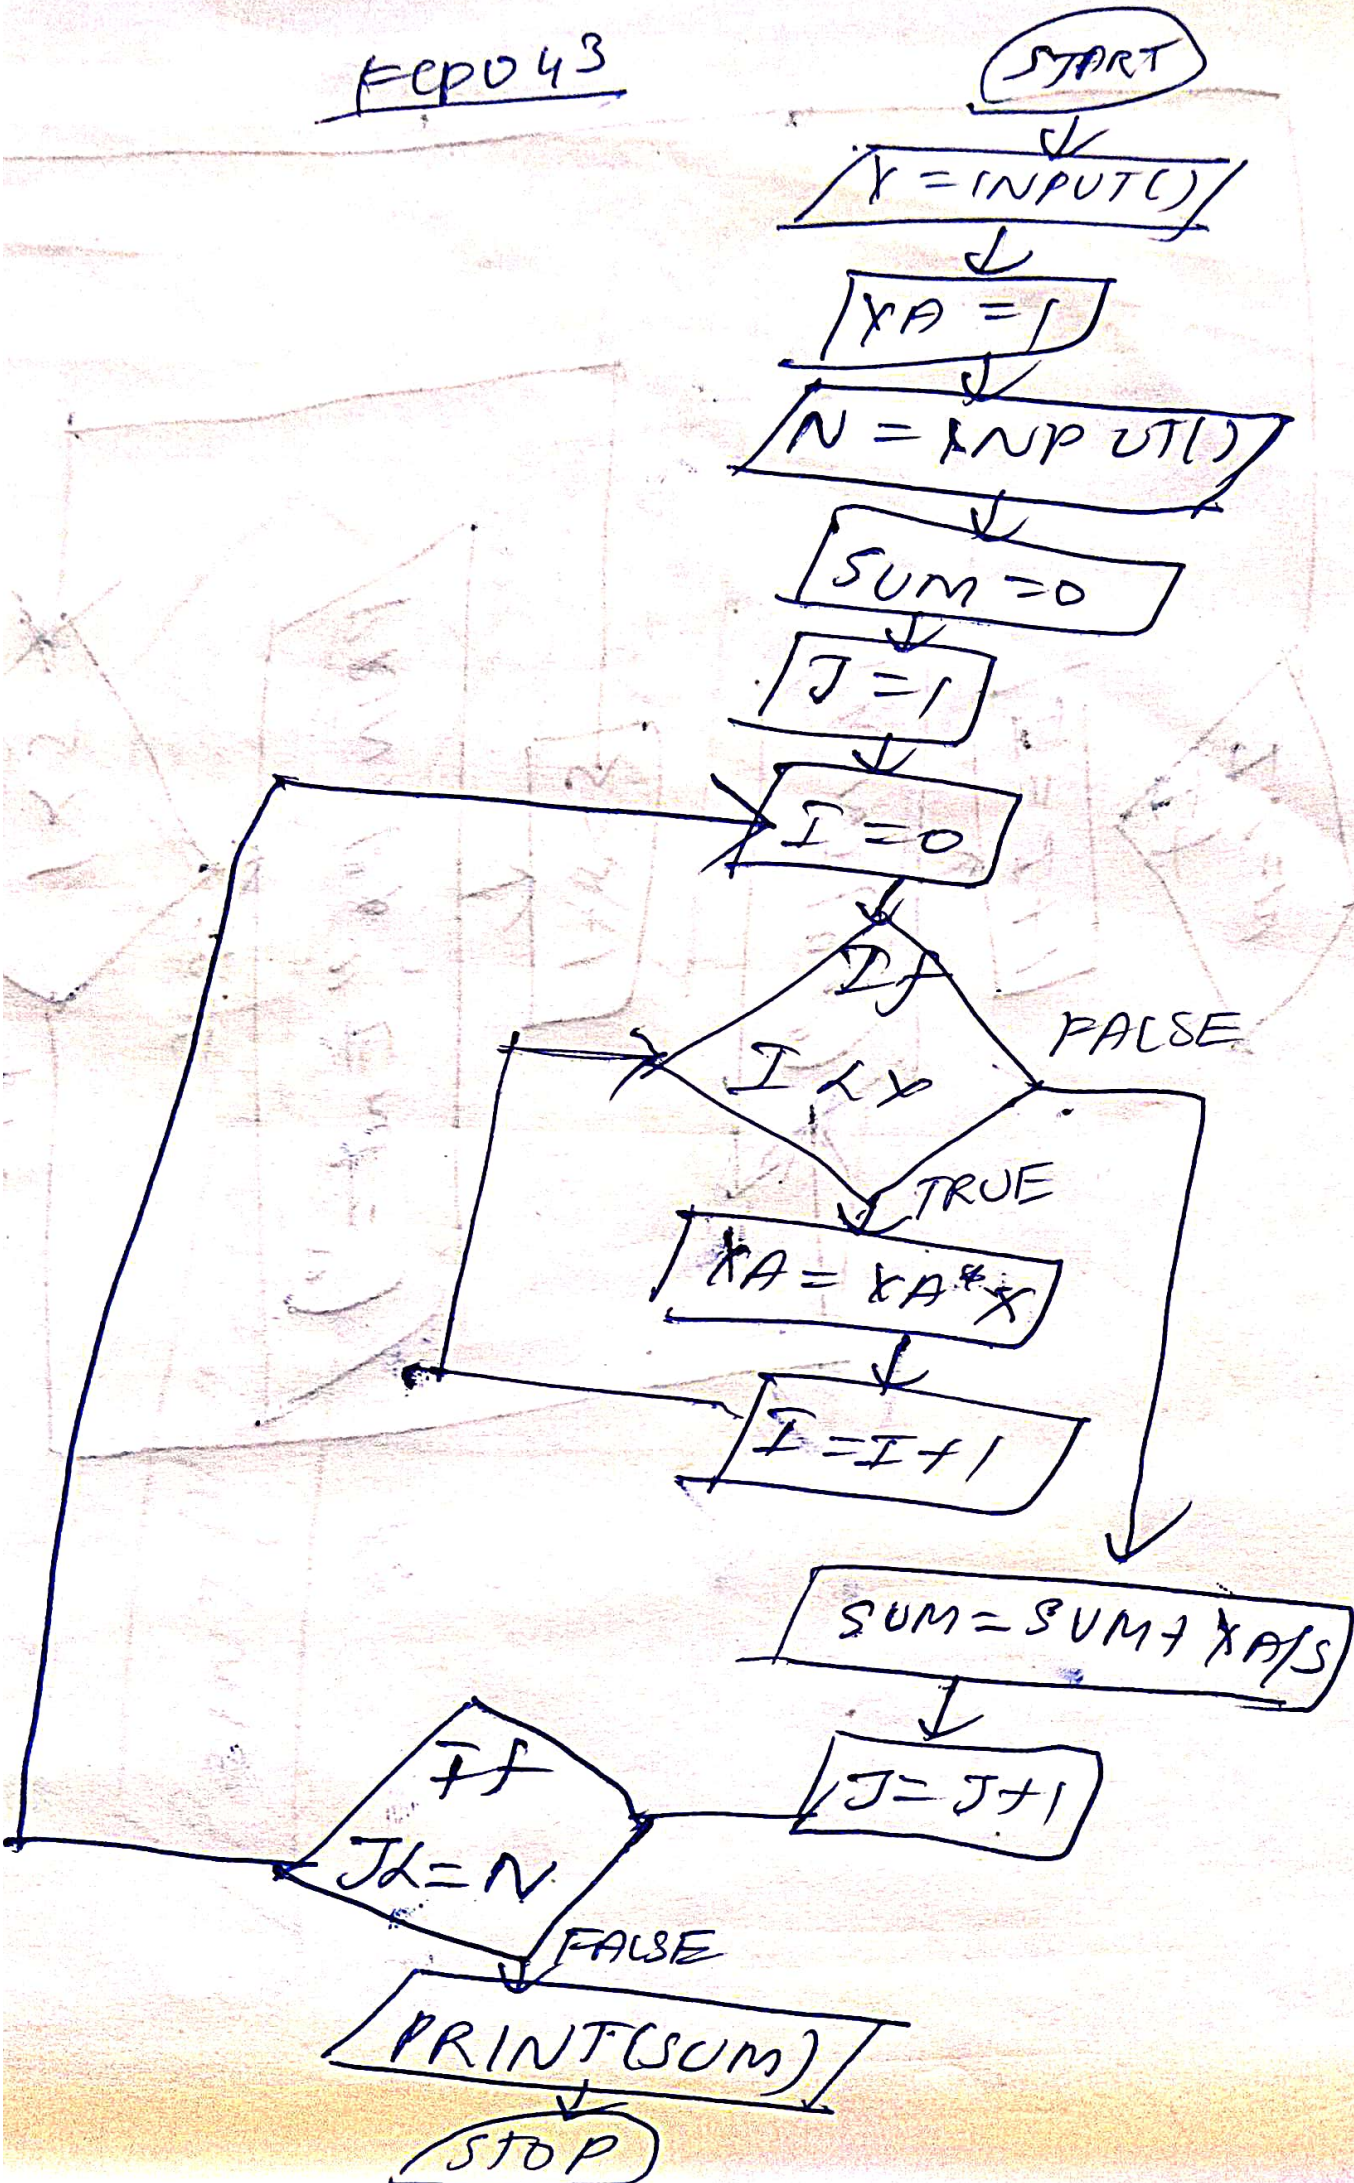 FCP043
START
X = INPUT()
XA = 1
N = INPUT()
SUM = 0
J = 1
I = 0
If
I < X
FALSE
TRUE
XA = XA * X
I = I + 1
SUM = SUM + XA/S
J = J + 1
If
J <= N
FALSE
PRINT(SUM)
STOP